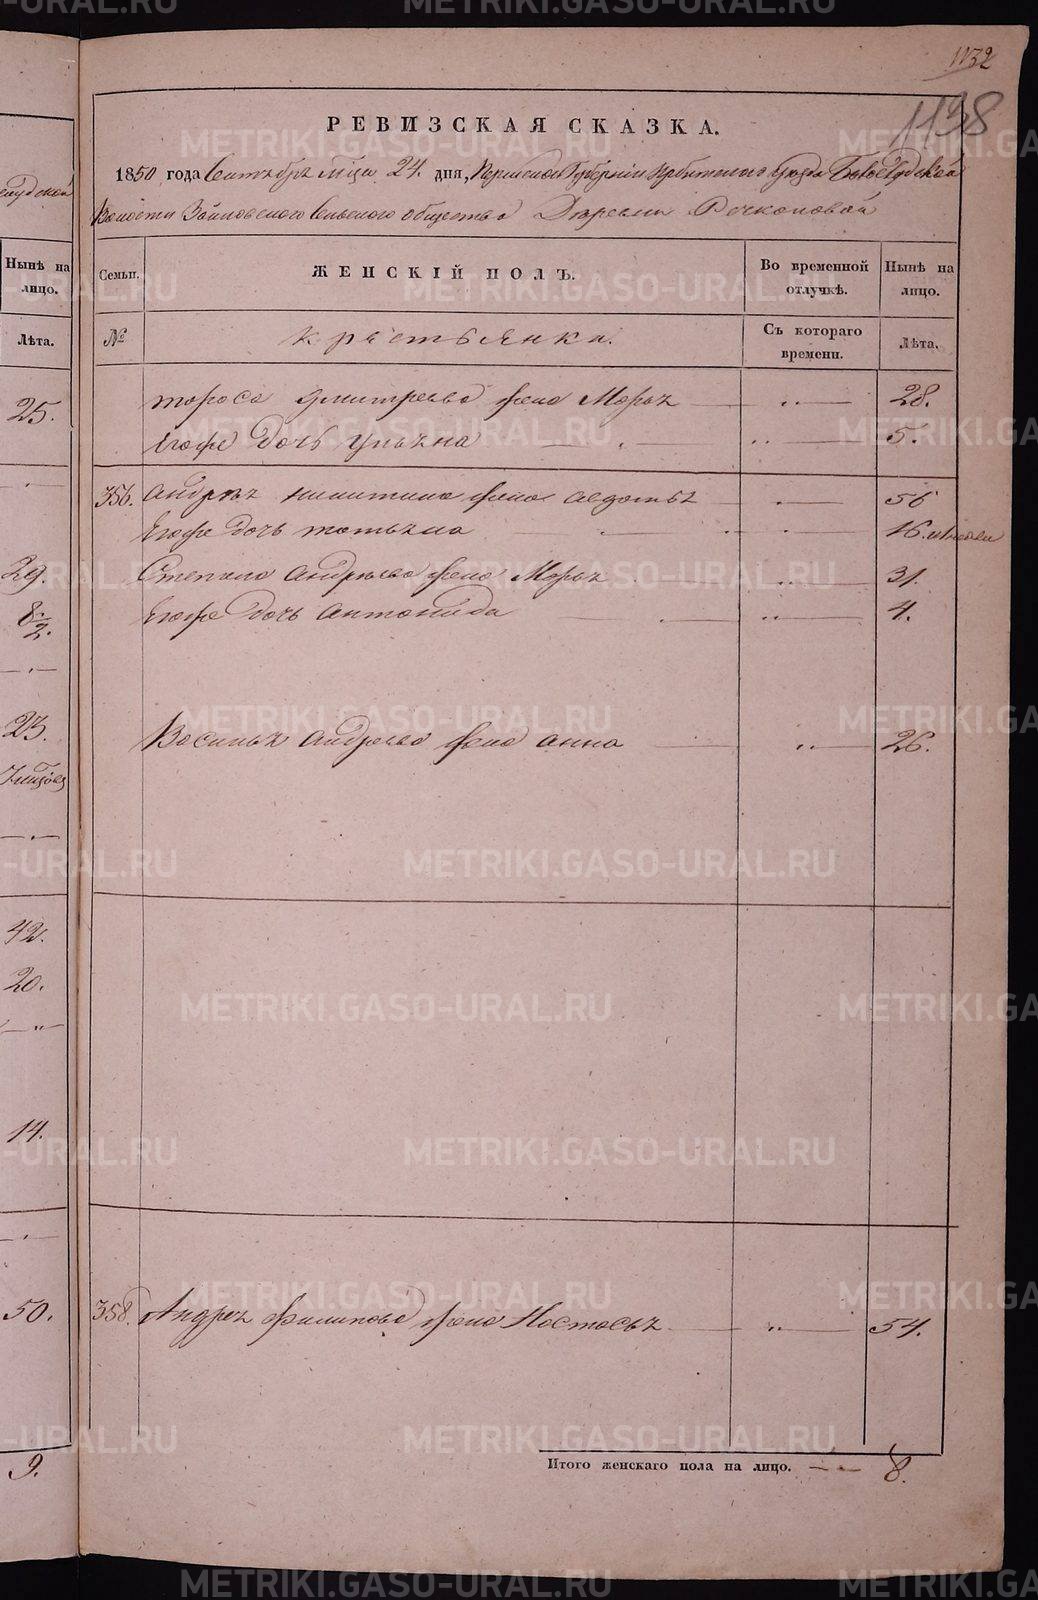 1132
1138
РЕВИЗСКАЯ СКАЗКА.
1850 года Сентября мца 24. дня, Пермской Губернии Ирбитскаго Уезда
Волости Зайковскаго Сельскаго общества Деревни Речкаловой
Нынѣ на лицо.
Семьи.
ЖЕНСКІЙ ПОЛЪ.
Во временной отлучкѣ.
Нынѣ на лицо.
Лѣта.
№
крестьянки.
Съ котораго времени.
Лѣта.
25.
Тороса Дмитреева жена Марья — „ — 28.
Егоже дочь Ульяна — „ — 5.
356. Андрея Никитина жена Авдотья — „ — 56
Егоже дочь Татьяна — „ — 16.
29. Степана Андреева жена Марья — „ — 31.
8/2. Егоже дочь Антонида — „ — 4.
23. Василья Андреева жена Анна — „ — 26.
42.
20.
14.
50. 358. Андрея Филипова жена Настасья — „ — 54.
9. Итого женскаго пола на лицо. — 8.
METRIKI.GASO-URAL.RU